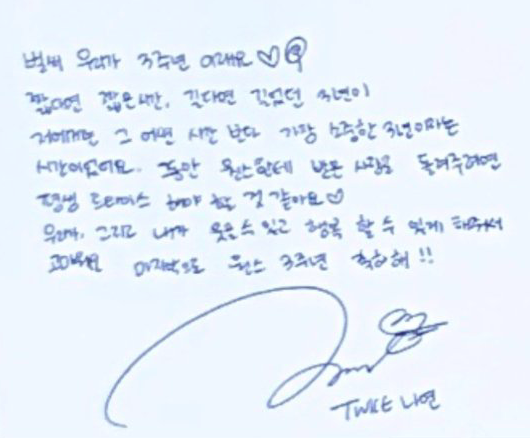 벌써 우리가 3주년 이래요♡
짧다면 짧은시간, 길다면 길었던 3년이
저에게만 그 어떤 시간 보다 가장 소중한 3년이라는
시간이었어요. 동안 원스한테 받은 사랑을 돌려주려면
평생 트와이스 해야 할 것 같아요♡
우리가, 그리고 내가 웃을수 있고 행복 할 수 있게 해주셔서
고마워요 마지막으로 원스 3주년 축하해!!
TWICE 나연